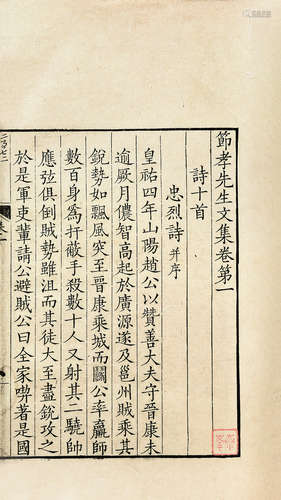 節孝先生文集卷第一
詩十首
忠烈詩 并序
皇祐四年山陽趙公以贊善大夫守晉康未
逾厥月儂智高起於廣源遂及邕州賊乘其
銳勢如飄風突至晉康乘城而鬪公率羸師
數百身為扞蔽手殺數十人又射其二驍帥
應弦俱倒賊勢雖沮而其徒大至盡銳攻之
於是軍吏軰請公避賊公曰全家喫著是國